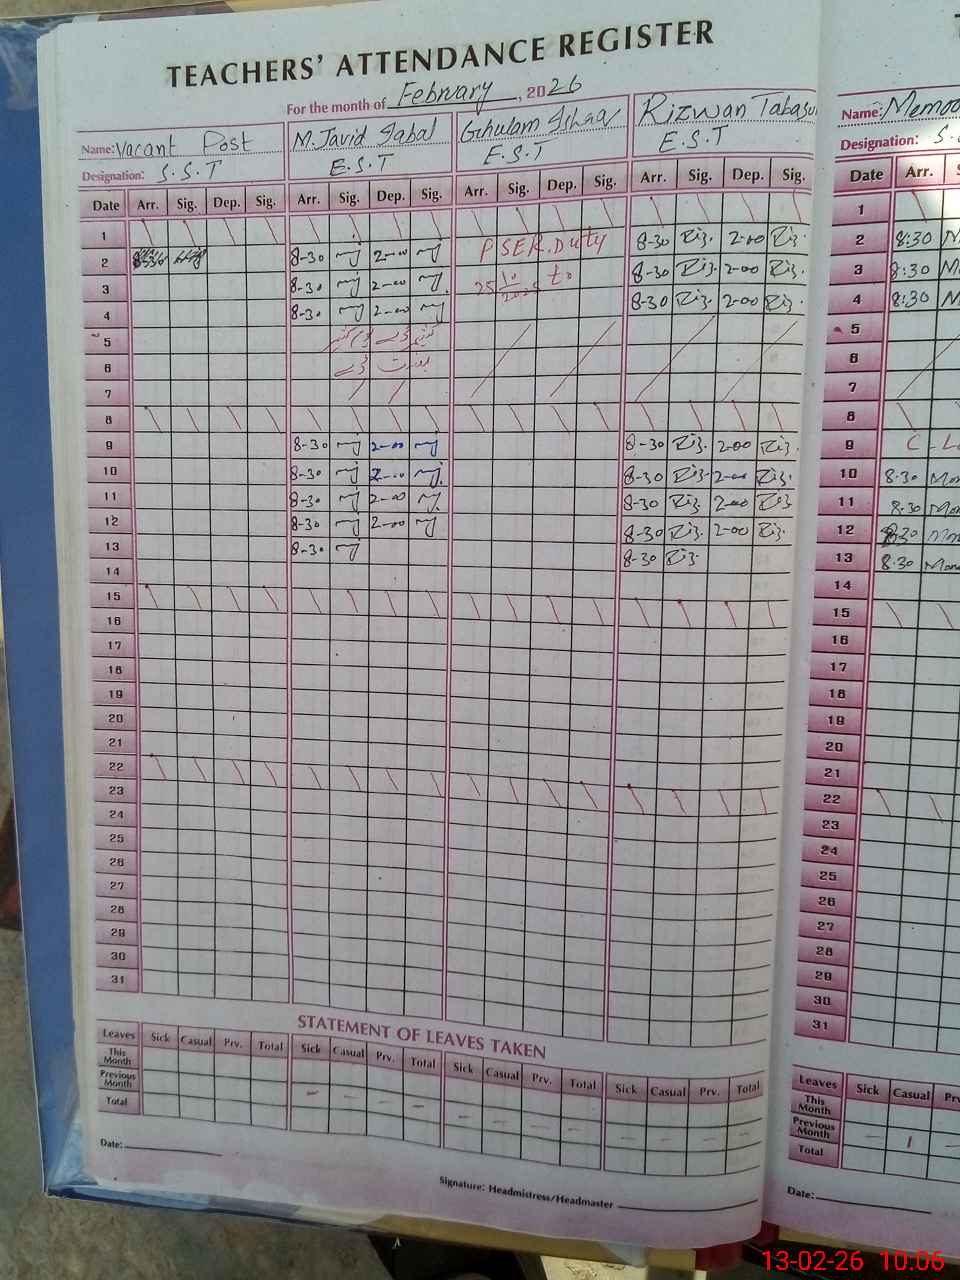 TEACHERS' ATTENDANCE REGISTER
For the month of February, 2026
Name: Vacant Post M. Javid Iqbal Ghulam Ishaq Rizwan Tabasu
Designation: S.S.T E.S.T E.S.T E.S.T
Date Arr. Sig. Dep. Sig. Arr. Sig. Dep. Sig. Arr. Sig. Dep. Sig. Arr. Sig. Dep. Sig.
1
2 8-30 2-00 PSER. Duty 8-30 Riz. 2-00 Riz.
3 8-30 2-00 25 10 2025 to 8-30 Riz. 2-00 Riz.
4 8-30 2-00 8-30 Riz. 2-00 Riz.
5
6
7
8
9 8-30 2-00 8-30 Riz. 2-00 Riz.
10 8-30 2-00 8-30 Riz. 2-00 Riz.
11 8-30 2-00 8-30 Riz. 2-00 Riz.
12 8-30 2-00 8-30 Riz. 2-00 Riz.
13 8-30 8-30 Riz.
14
15
16
17
18
19
20
21
22
23
24
25
26
27
28
29
30
31
STATEMENT OF LEAVES TAKEN
Leaves Sick Casual Prv. Total Sick Casual Prv. Total Sick Casual Prv. Total Sick Casual Prv. Total
This Month
Previous Month - - - - - - - - - - - -
Total
Date:
Signature: Headmistress/Headmaster
T
Name: Memoo
Designation: S.
Date Arr. S
1
2 8:30 M
3 8:30 M
4 8:30 M
5
6
7
8
9 C-L
10 8.30 Mom
11 8.30 Mom
12 8.30 Mom
13 8.30 Mom
14
15
16
17
18
19
20
21
22
23
24
25
26
27
28
29
30
31
Leaves Sick Casual Prv
This Month
Previous Month - 1 -
Total
Date:
13-02-26 10.06